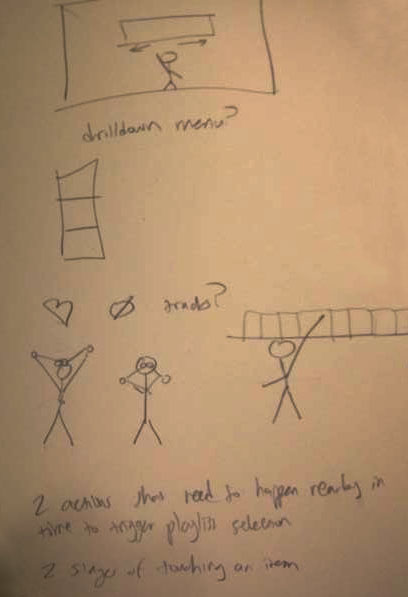 drilldown menu?
tracks?
2 actions that need to happen nearby in
time to trigger playlist selection
2 stages of touching an item